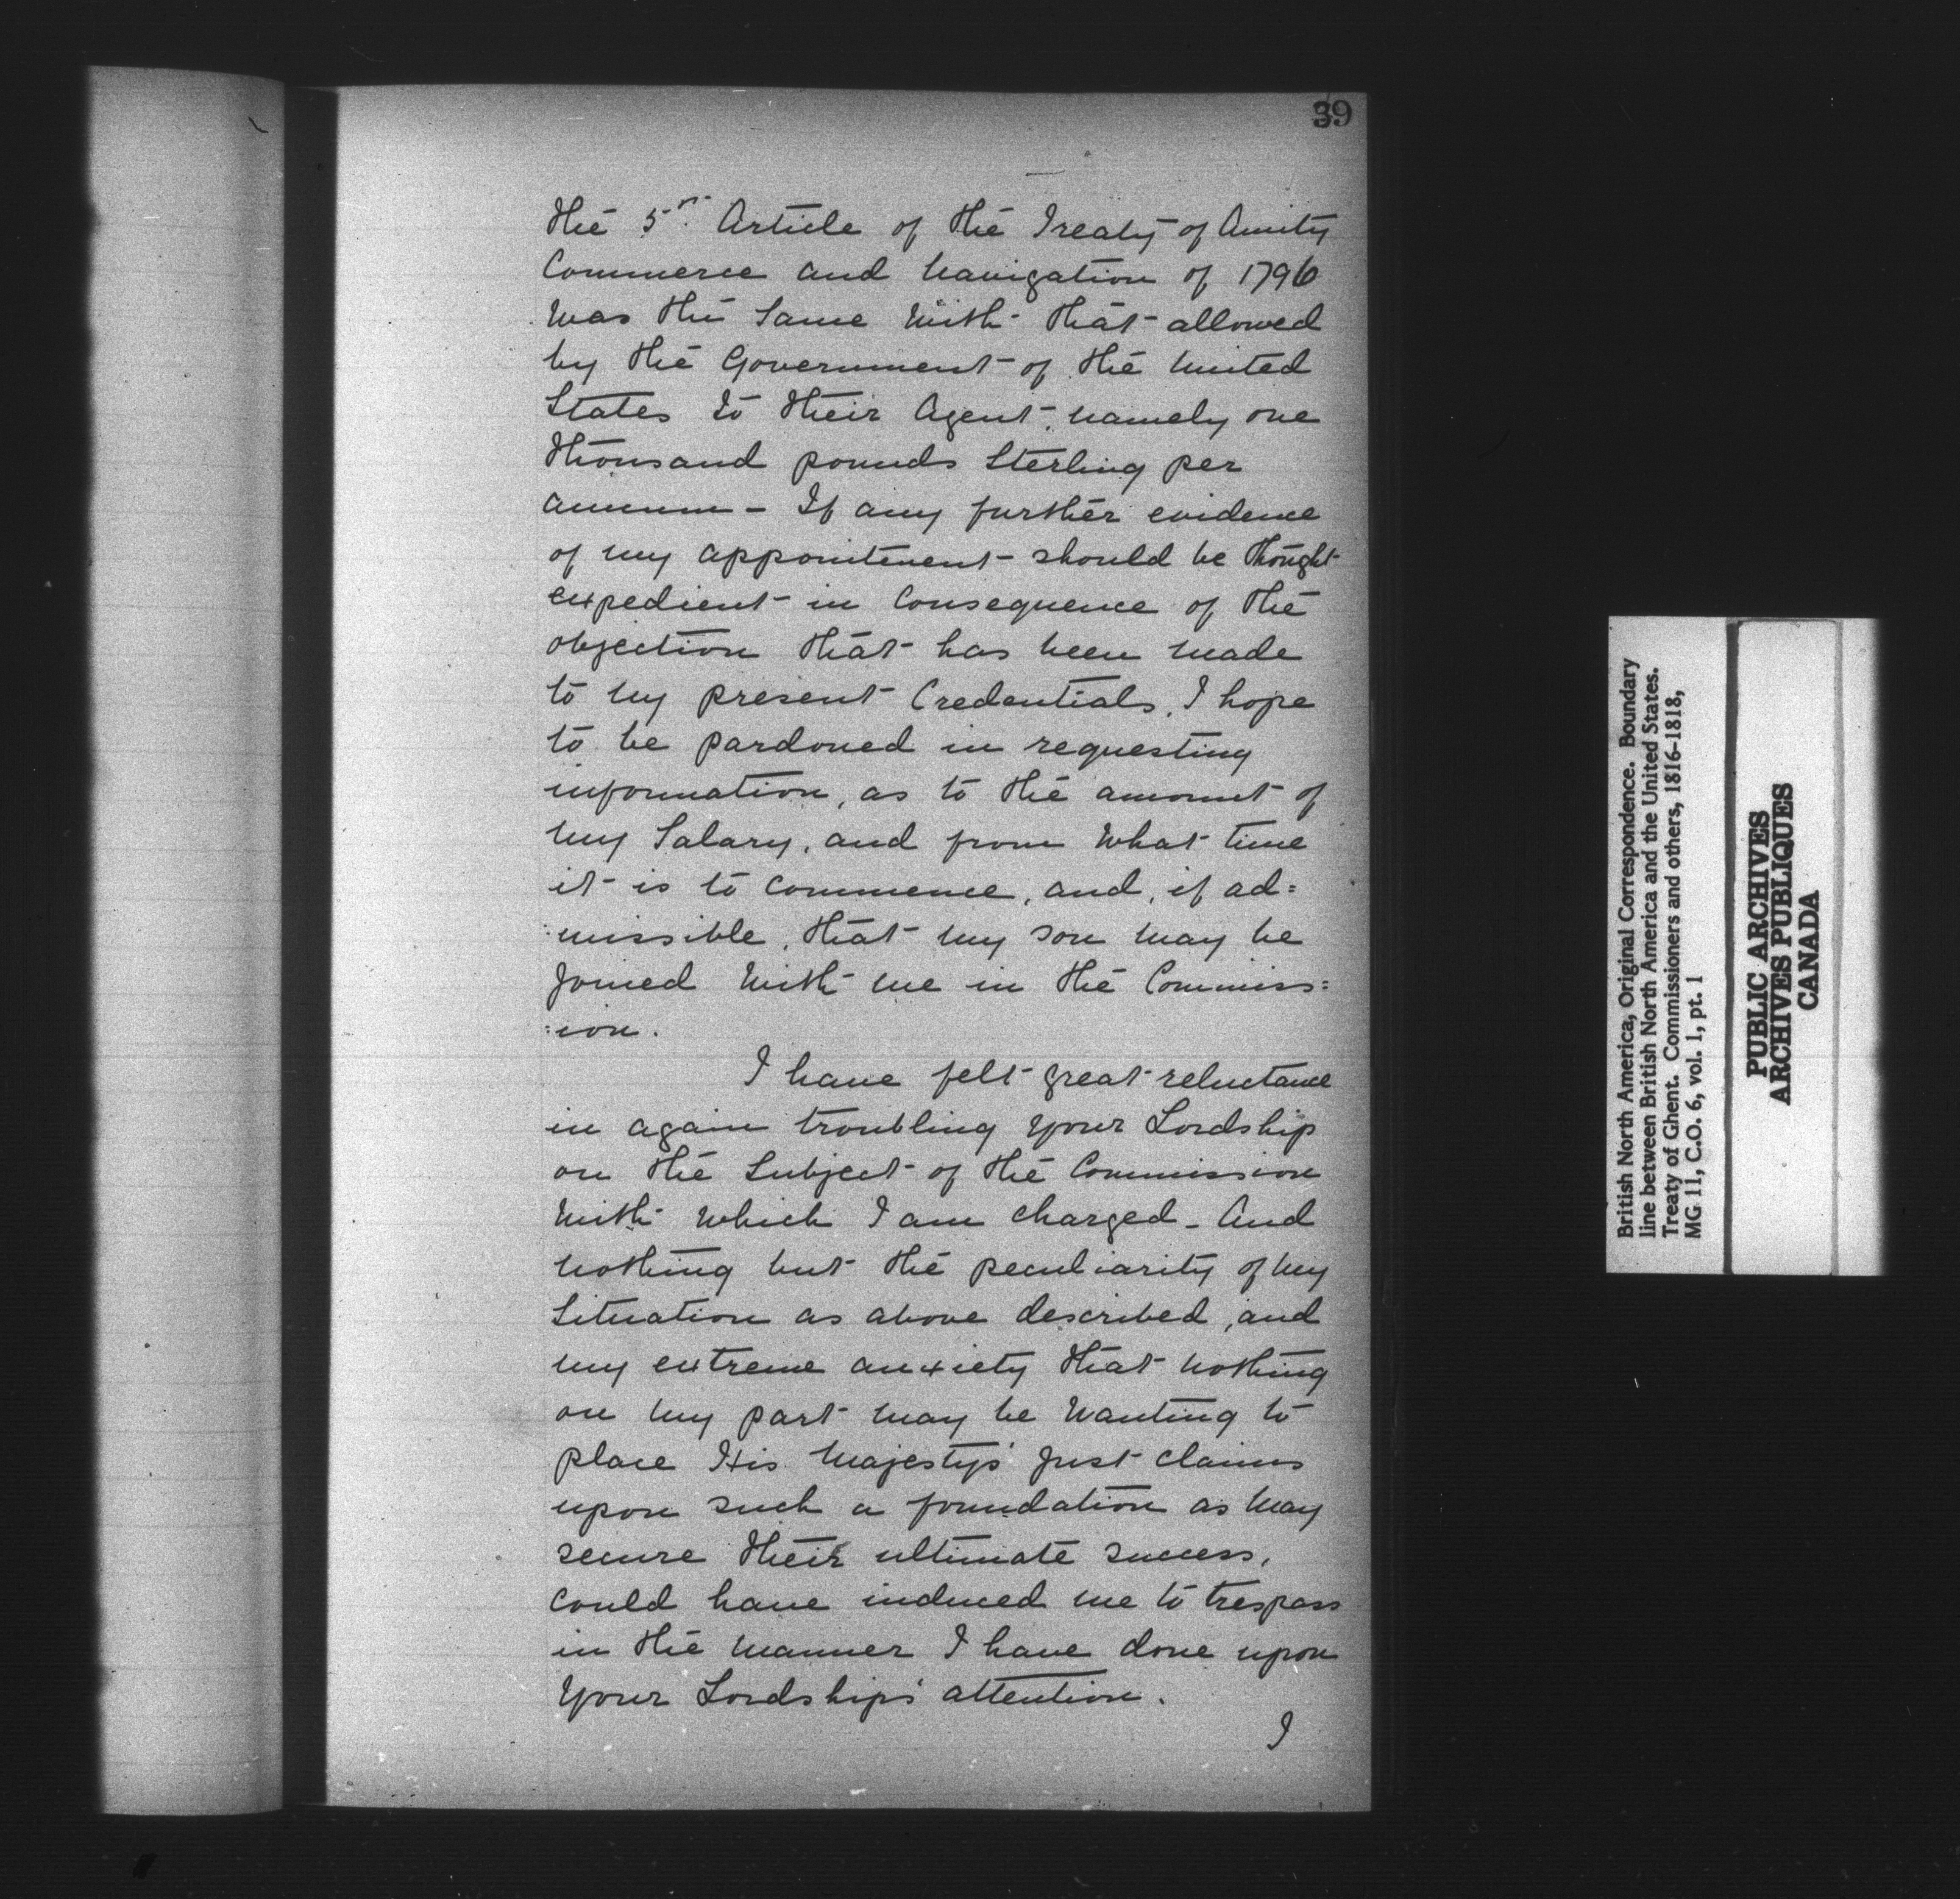 39
the 5th Article of the Treaty of Amity
Commerce and Navigation of 1796
was the Same with that allowed
by the Government of the United
States to their Agent, namely one
thousand pounds Sterling per
annum - If any further evidence
of my appointment should be thought
expedient in Consequence of the
objection that has been made
to my present Credentials, I hope
to be pardoned in requesting
information, as to the amount of
my Salary, and from what time
it is to commence, and, if ad=
:missible, that my son may be
joined with me in the Commiss:
:ion.
I have felt great reluctance
in again troubling your Lordship
on the Subject of the Commission
with which I am charged - And
nothing but the peculiarity of my
Situation as above described, and
my extreme anxiety that nothing
on my part may be wanting to
place His Majesty's just claims
upon such a foundation as may
secure their ultimate success,
could have induced me to trespass
in the manner I have done upon
your Lordships' attention.
I
British North America, Original Correspondence. Boundary
line between British North America and the United States.
Treaty of Ghent. Commissioners and others, 1816-1818,
MG 11, C.O. 6, vol. 1, pt. 1
PUBLIC ARCHIVES
ARCHIVES PUBLIQUES
CANADA